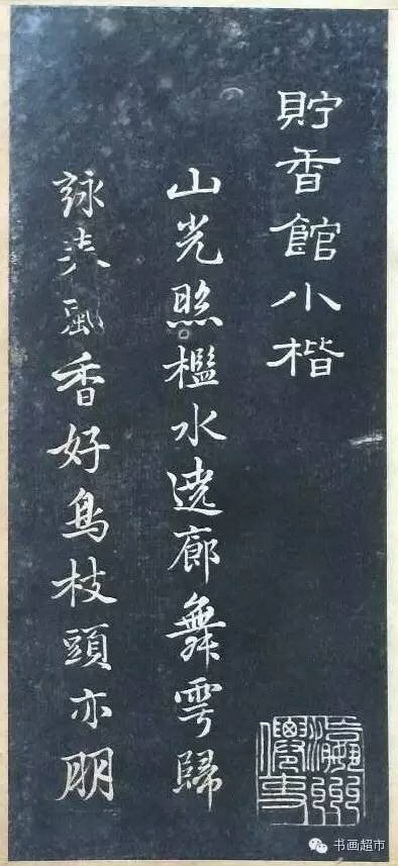 貯香館小楷
山光照檻水遶廊舞雩歸
詠春風香好鳥枝頭亦朋
书画超市